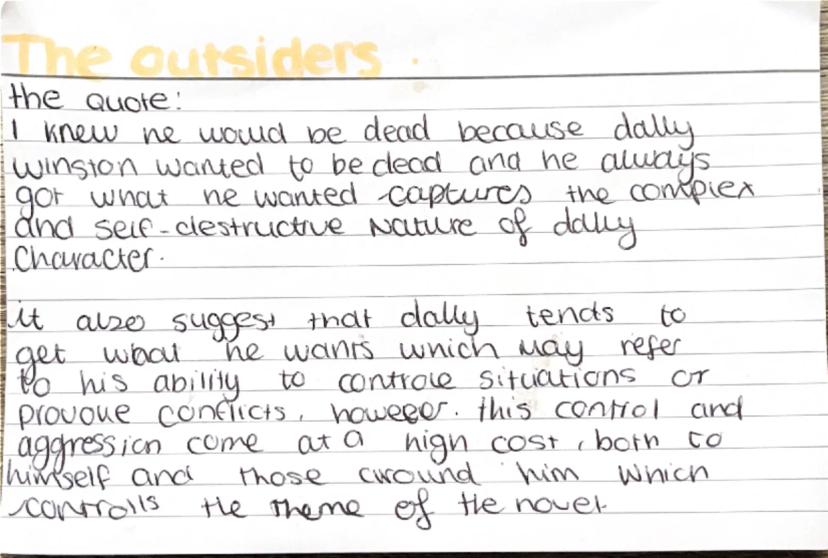 The outsiders.
the quote:
I knew he would be dead because dally
winston wanted to be dead and he always
got what he wanted captures the complex
and self-destructive nature of dally
Character.
it also suggest that dally tends to
get what he wants which may refer
to his ability to controle situations or
provoue conflicts, howeeer. this control and
aggression come at a high cost, both to
himself and those around him which
controlls the theme of the novel